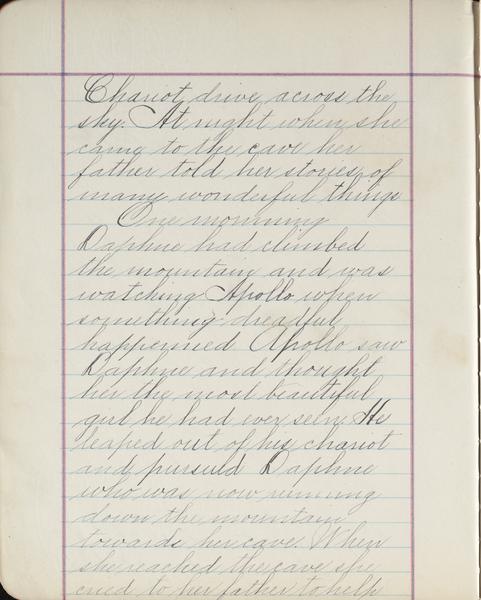 Chariot drive across the
sky. At night when she
came to the cave her
father told her stories of
many wonderful things
One mornning
Daphne had climbed
the mountain and was
watching Apollo when
something dreadful
happenned Apollo saw
Daphne and thought
her the most beautiful
girl he had ever seen. He
leaped out of his chariot
and pursued Daphne
who was now running
down the mountain
towards her cave. When
she reached the cave she
cried to her father to help